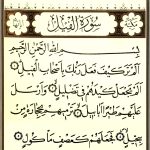 سورة الفيل
بسم الله الرحمن الرحيم
ألم تر كيف فعل ربك بأصحاب الفيل
ألم يجعل كيدهم في تضليل وأرسل
عليهم طيرا أبابيل ترميهم بحجارة من
سجيل فجعلهم كعصف مأكول